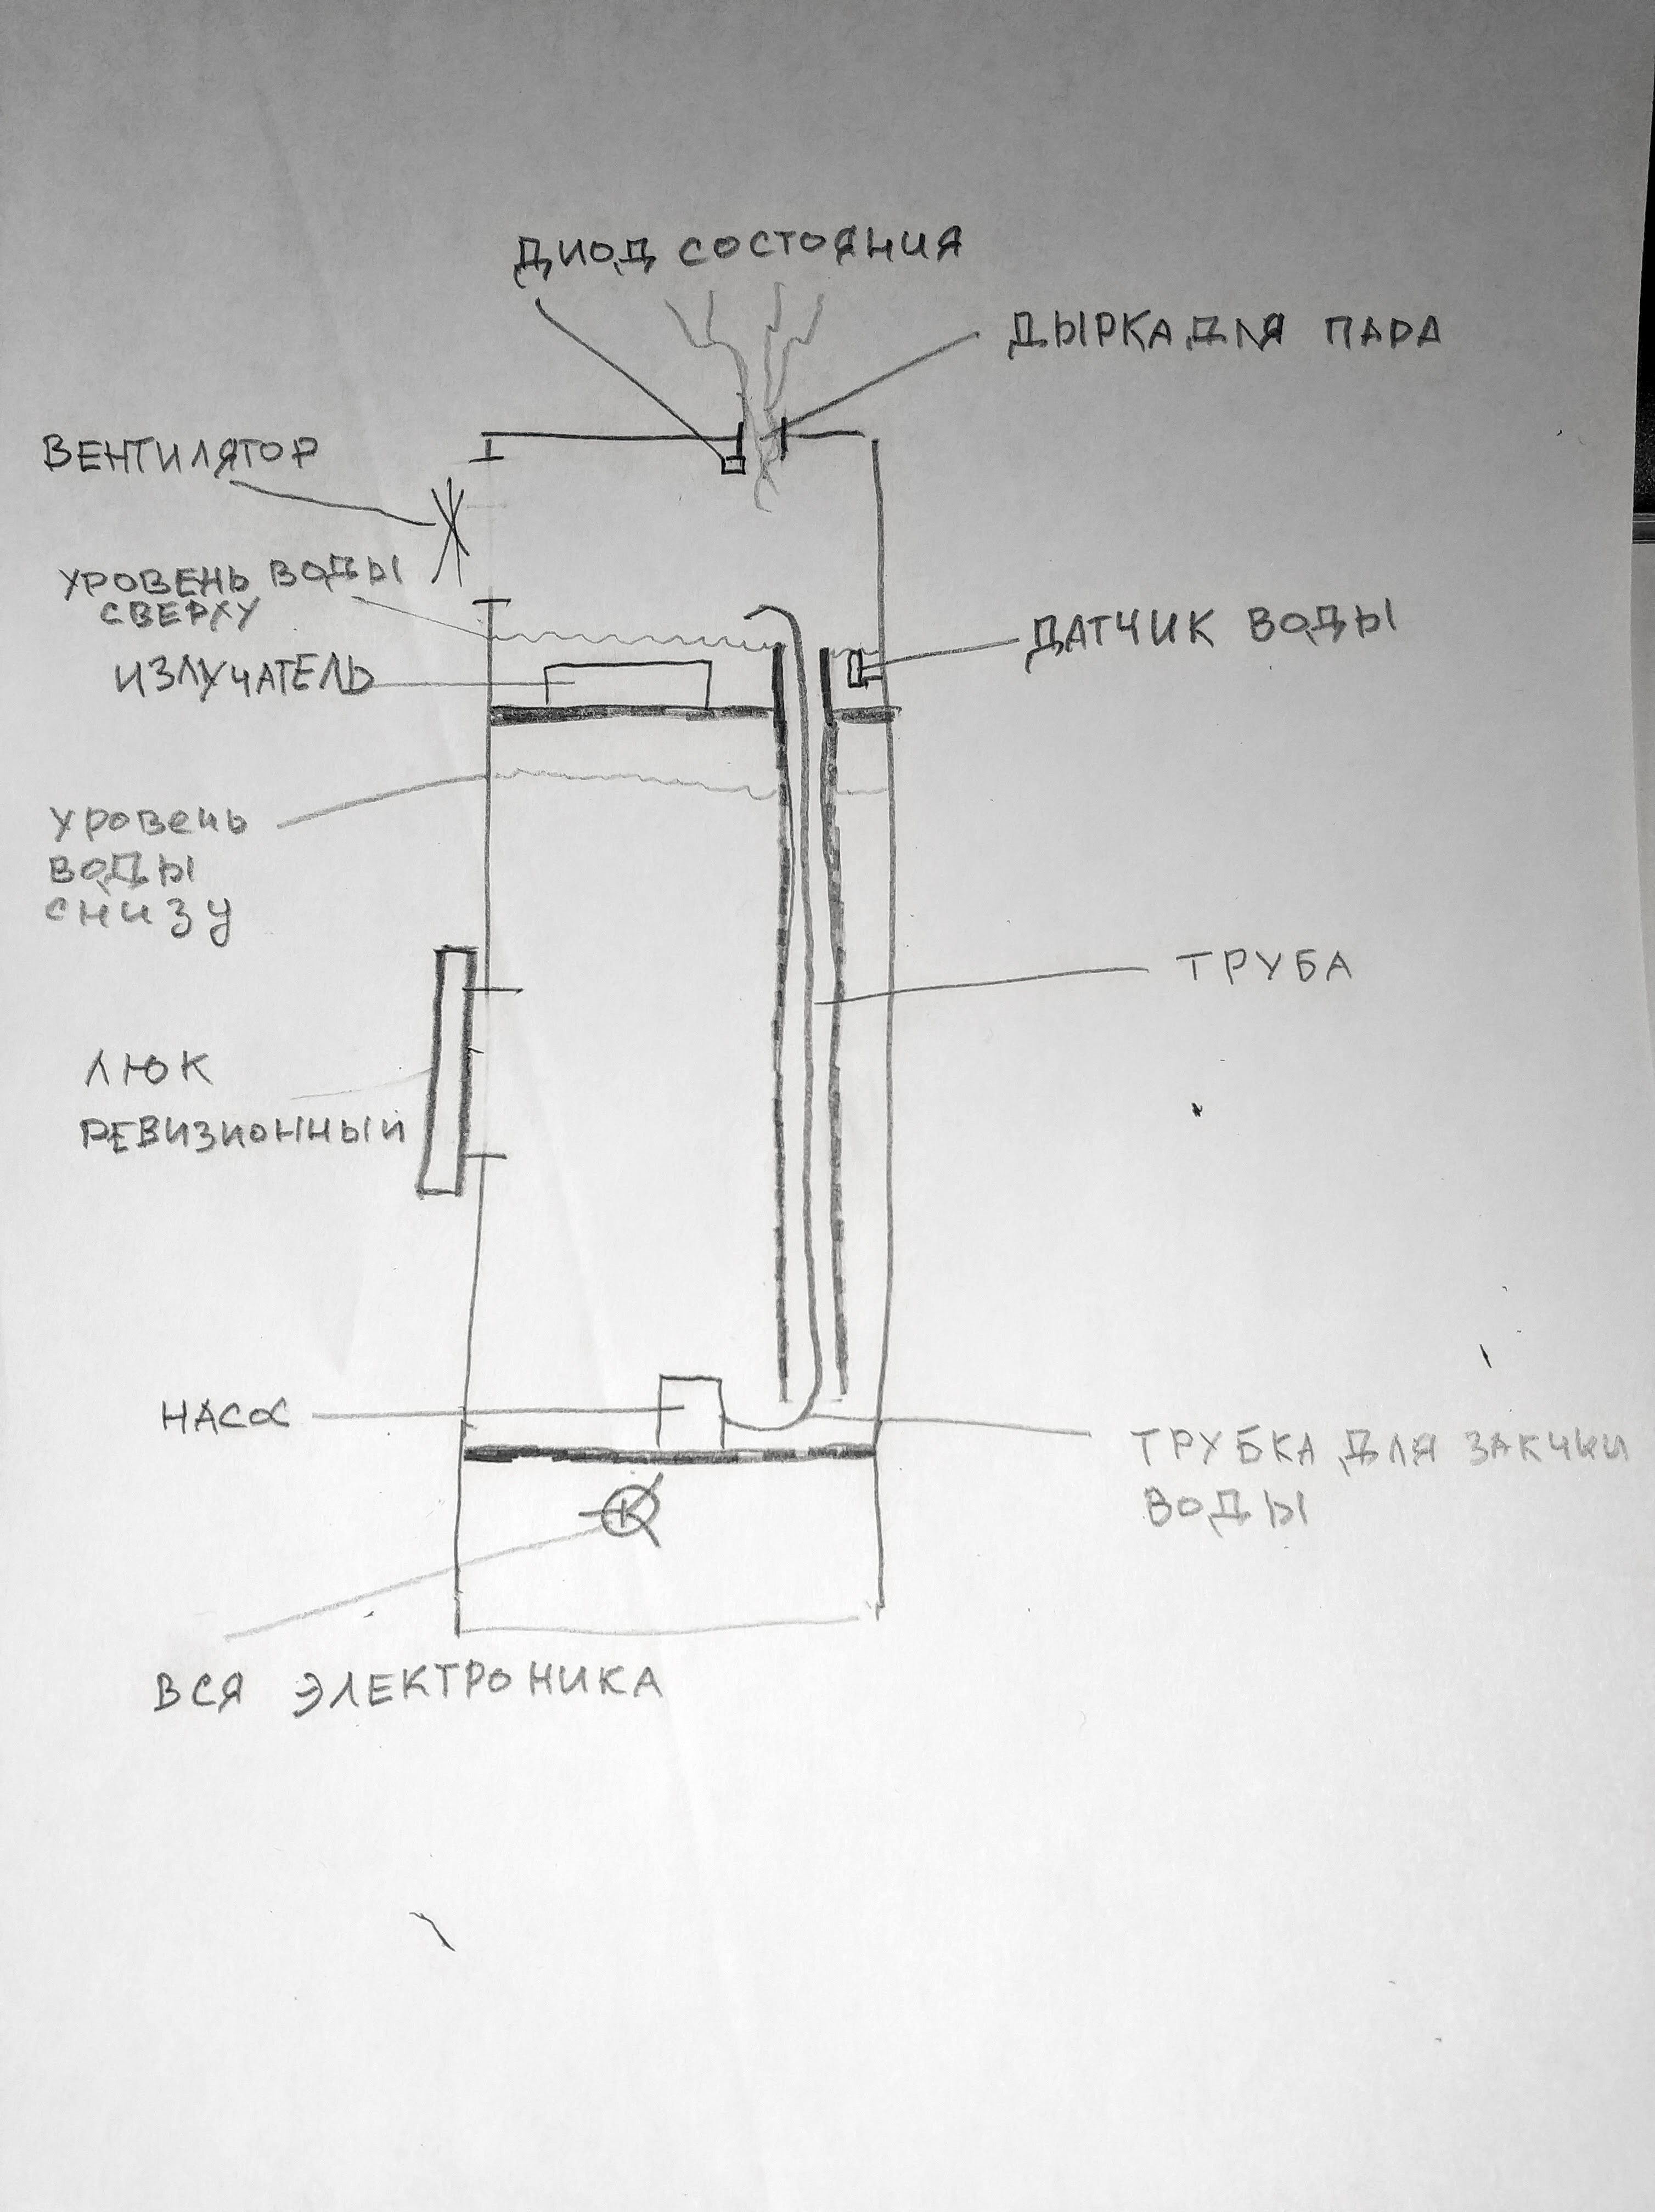 ДИОД СОСТОЯНИЯ
ДЫРКА ДЛЯ ПАРА
ВЕНТИЛЯТОР
УРОВЕНЬ ВОДЫ
СВЕРХУ
ДАТЧИК ВОДЫ
ИЗЛУЧАТЕЛЬ
Уровень
ВОДЫ
СНИЗУ
ТРУБА
ЛЮК
РЕВИЗИОННЫЙ
НАСОС
ТРУБКА ДЛЯ ЗАКЧКИ
ВОДЫ
ВСЯ ЭЛЕКТРОНИКА